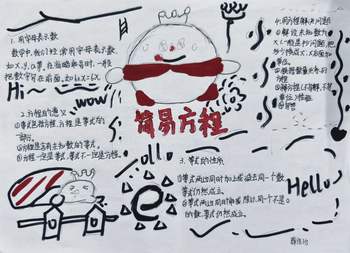 1.用字母表示数
数学中,我们经常用字母表示数,
如x,y,a等,在省略乘号时,一般
把数字写在前面,如6×x=6x
Hi~
wow
简易方程
2.方程的意义
①等式包括方程,方程是等式的
一部分。
②方程是含有未知数的等式。
③方程一定是等式,等式不一定是方程。
3.等式的性质
①等式两边同时加上或减去同一个数,
等式仍然成立。
②等式两边同时乘或除以同一个不是0
的数,等式仍然成立。
4.用方程解决问题
①解设未知数为
等式
④检验
⑤写答
Hello
e